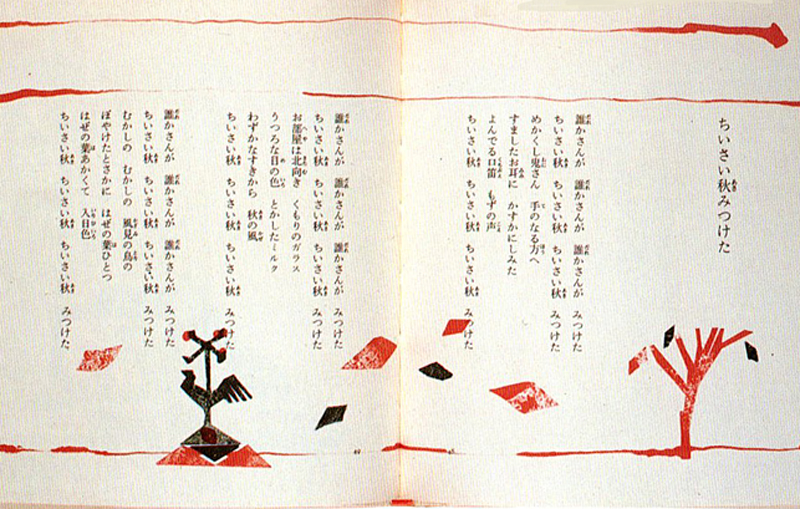 ちいさい秋みつけた
誰かさんが　誰かさんが　誰かさんが　みつけた
ちいさい秋　ちいさい秋　ちいさい秋　みつけた
めかくし鬼さん　手のなる方へ
すましたお耳に　かすかにしみた
よんでる口笛　もずの声
ちいさい秋　ちいさい秋　ちいさい秋　みつけた
誰かさんが　誰かさんが　誰かさんが　みつけた
ちいさい秋　ちいさい秋　ちいさい秋　みつけた
お部屋は北向き　くもりのガラス
うつろな目の色　とかしたミルク
わずかなすきから　秋の風
ちいさい秋　ちいさい秋　ちいさい秋　みつけた
誰かさんが　誰かさんが　誰かさんが　みつけた
ちいさい秋　ちいさい秋　ちいさい秋　みつけた
むかしの　むかしの　風見の鳥の
ぼやけたとさかに　はぜの葉ひとつ
はぜの葉あかくて　入日色
ちいさい秋　ちいさい秋　ちいさい秋　みつけた